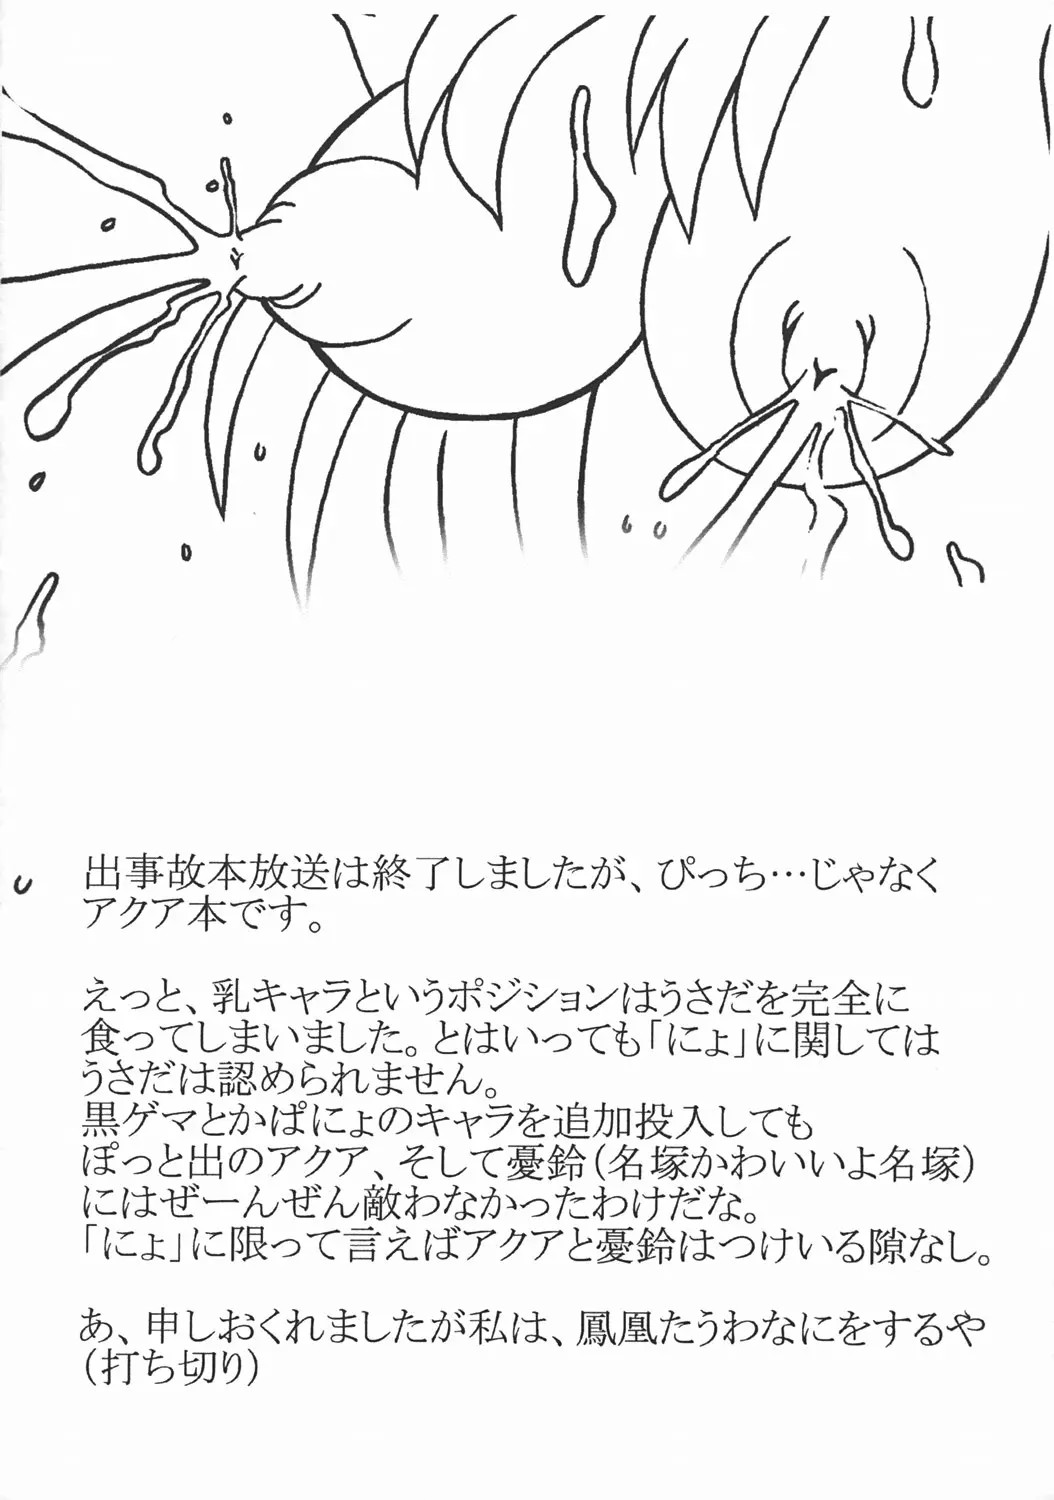 出事故本放送は終了しましたが、ぴっち…じゃなく
アクア本です。
えっと、乳キャラというポジションはうさだを完全に
食ってしまいました。とはいっても「にょ」に関しては
うさだは認められません。
黒ゲマとかぱにょのキャラを追加投入しても
ぽっと出のアクア、そして憂鈴（名塚かわいいよ名塚）
にはぜーんぜん敵わなかったわけだな。
「にょ」に限って言えばアクアと憂鈴はつけいる隙なし。
あ、申しおくれましたが私は、鳳凰たうわなにをするや
（打ち切り）